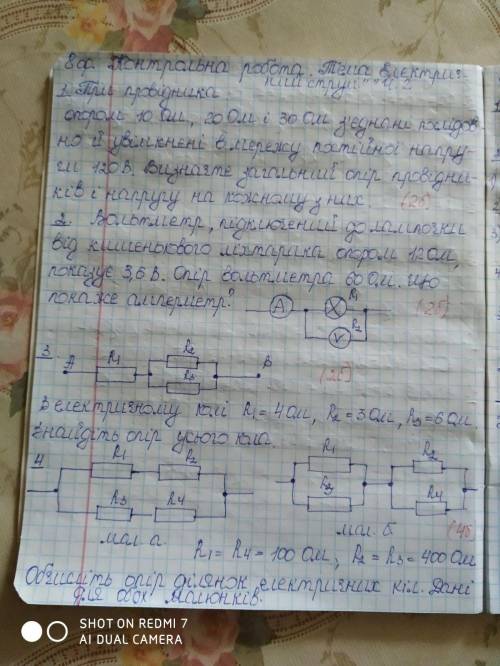 8 ф. Контрольна робота. Тема „Електрич-
ний струм" Ч.2
1. Три провідника
опором 10 Ом, 20 Ом і 30 Ом з'єднані послідов-
но й увімкнені в мережу постійної напру-
ги 120 В. Визначте загальний опір провідни-
ків і напругу на кожному з них. (2б)
2. Вольтметр, підключений до лампочки
від кишенькового ліхтарика опором 12 Ом,
показує 3,6 В. Опір вольтметра 60 Ом. Що
покаже амперметр?
A R1 R2 V (2б)
3. A R1 R2 R3 B (2б)
В електричному колі R1 = 4 Ом, R2 = 3 Ом, R3 = 6 Ом
Знайдіть опір усього кола.
4 R1 R2 R3 R4
R1 R3 R2 R4
мал. а. мал. б. (4б
R1 = R4 = 100 Ом, R2 = R3 = 400 Ом
Обчисліть опір ділянок електричних кіл. Дані
для обох малюнків.
SHOT ON REDMI 7
AI DUAL CAMERA